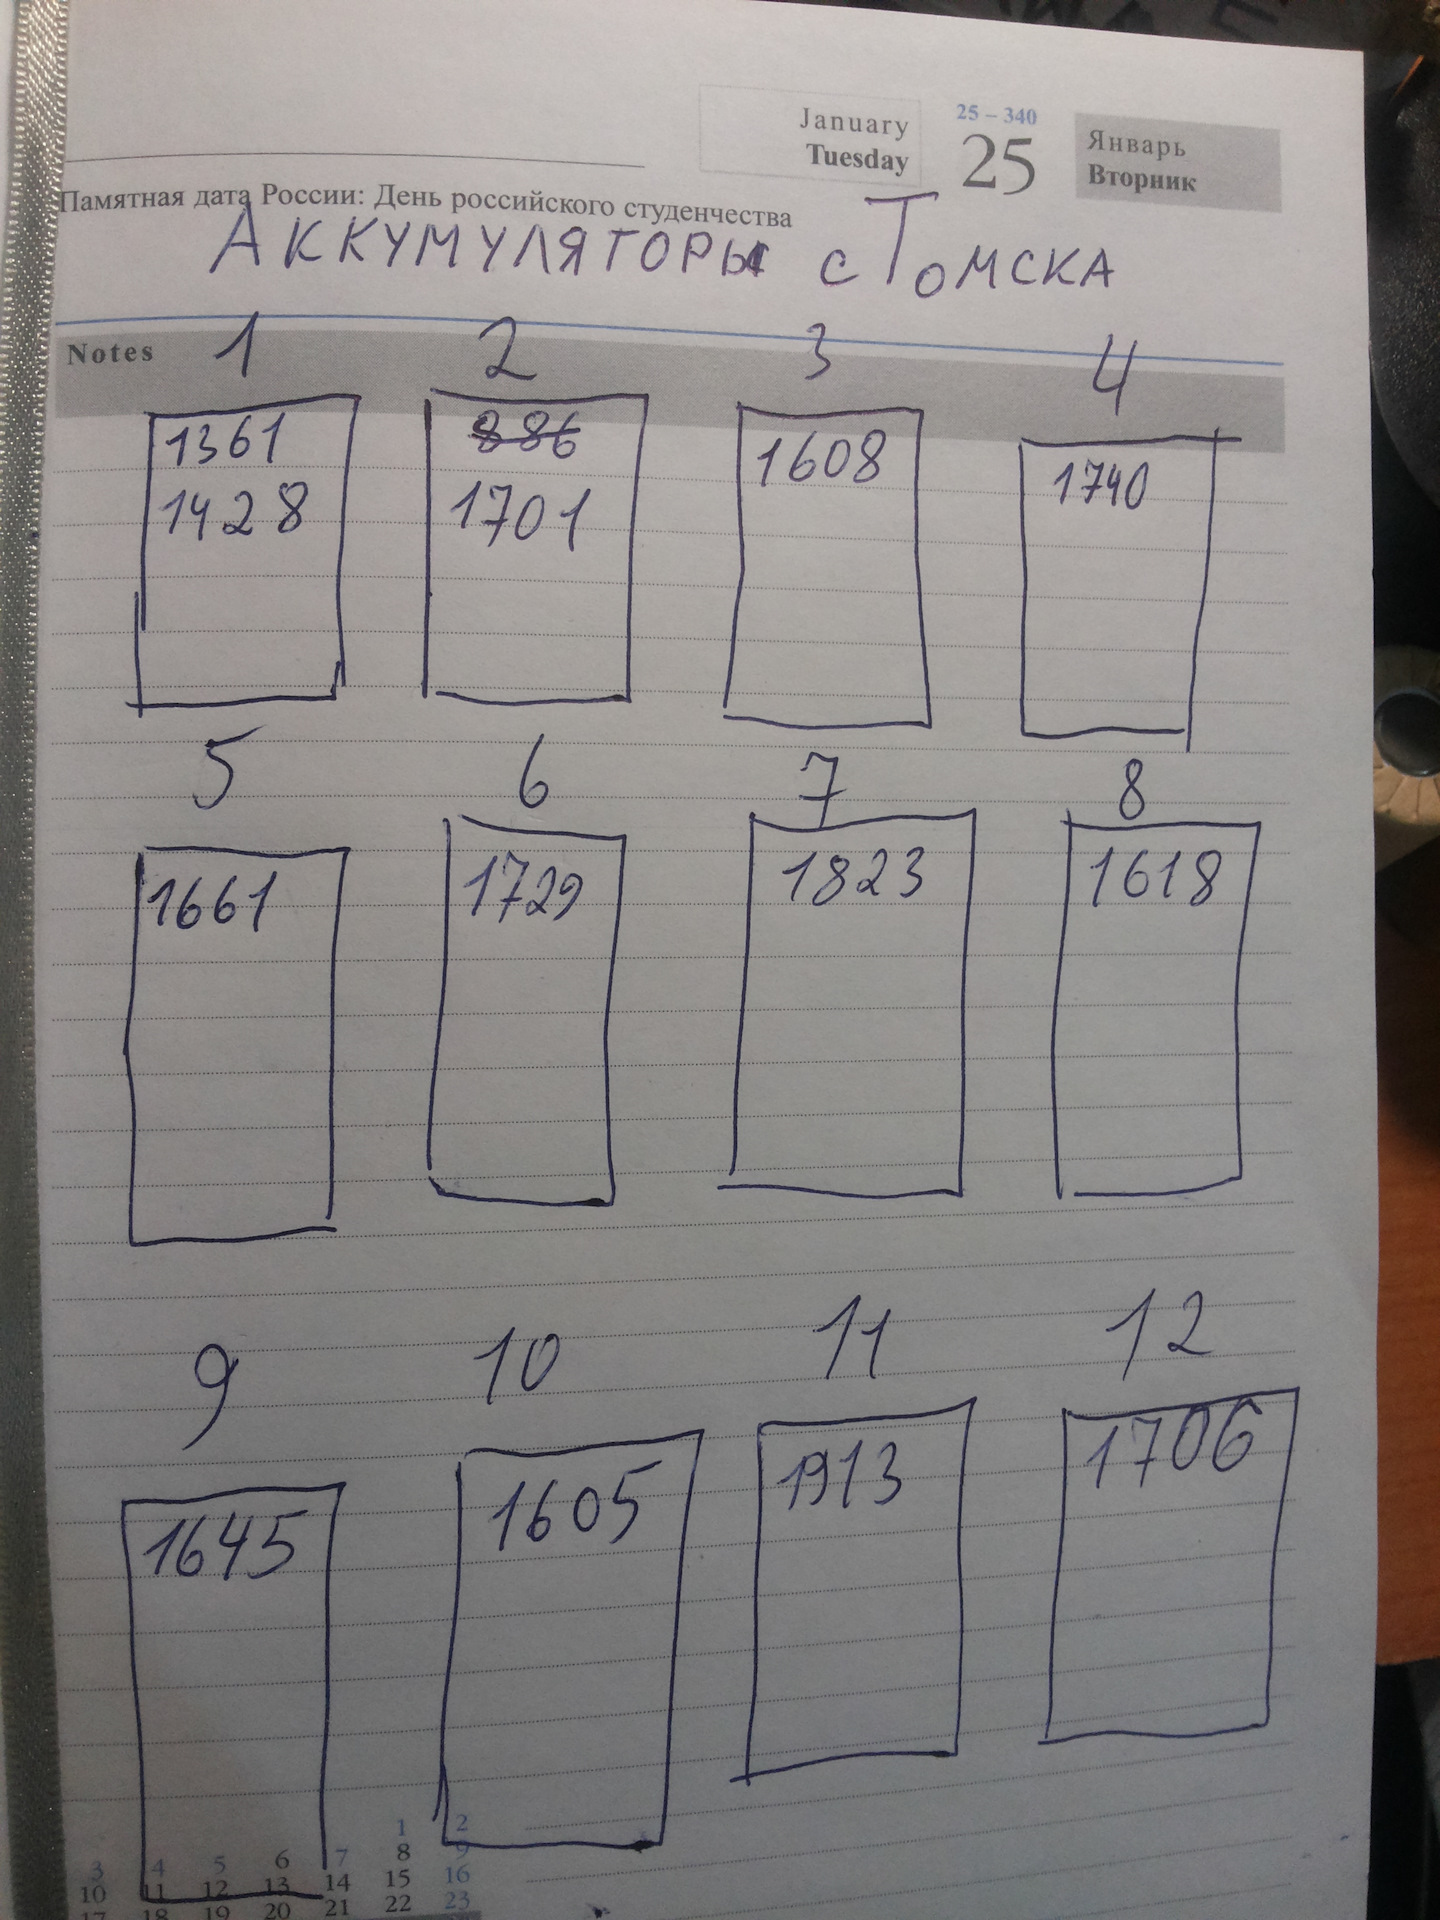 January 25 – 340 Январь
Tuesday 25 Вторник
Памятная дата России: День российского студенчества
Аккумуляторы с Томска
Notes
1 2 3 4
1361 886 1608 1740
1428 1701
5 6 7 8
1661 1729 1823 1618
9 10 11 12
1645 1605 1913 1706
1 2
3 4 5 6 7 8 9
10 11 12 13 14 15 16
17 18 19 20 21 22 23